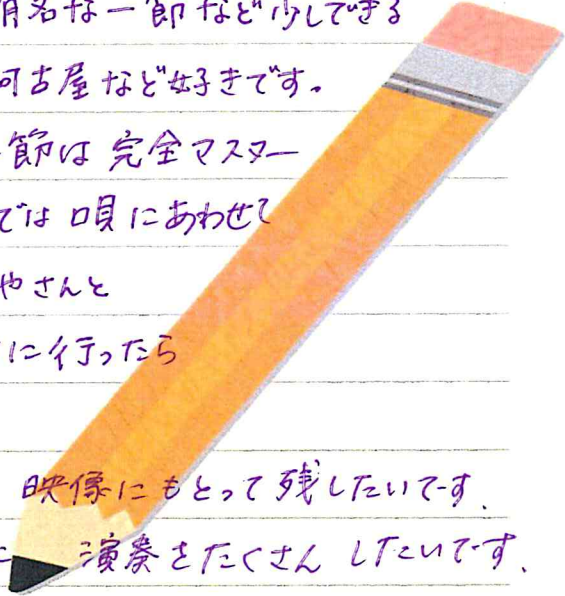 有名な一節など少しできる
阿古屋など好きです。
節は 完全マスター
では 唄にあわせて
やさんと
に行ったら
映像にもとって残したいです、
演奏をたくさん したいです、